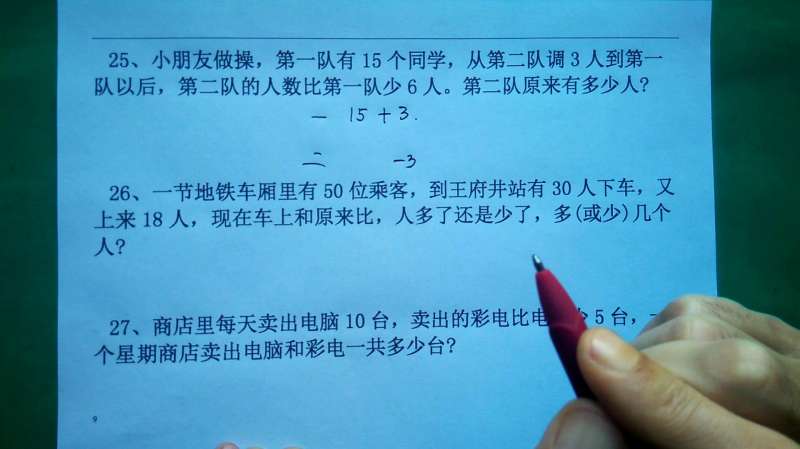 25、小朋友做操，第一队有 15 个同学，从第二队调 3 人到第一
队以后，第二队的人数比第一队少 6 人。第二队原来有多少人?
一 15+3.
二 -3
26、一节地铁车厢里有 50 位乘客，到王府井站有 30 人下车，又
上来 18 人，现在车上和原来比，人多了还是少了，多(或少)几个
人?
27、商店里每天卖出电脑 10 台，卖出的彩电比电 少 5 台，一
个星期商店卖出电脑和彩电一共多少台?
9